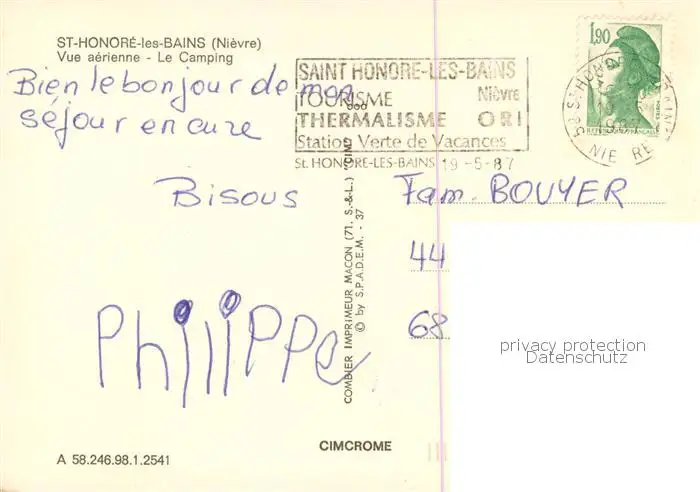 ST-HONORÉ-les-BAINS (Nièvre)
Vue aérienne - Le Camping
Bien le bonjour de mon
séjour en cure
Bisous
Philippe
A 58.246.98.1.2541
CIMCROME
COMBIER IMPRIMEUR MACON (71. S.-&-L.) "CIM"
© by S.P.A.D.E.M. - 37
SAINT HONORE-LES-BAINS
TOURISME Nièvre
THERMALISME ORL
Station Verte de Vacances
St. HONORE-LES-BAINS 19-5-87
1,90
58 St HONORE
NIEVRE
Fam. BOUYER
44
68
privacy protection
Datenschutz